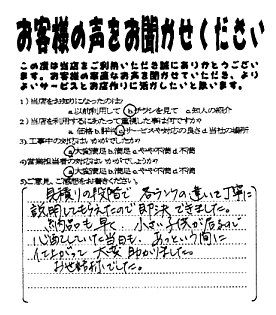 お客様の声をお聞かせください
この度は当店をご利用いただき誠にありがとうござい
ます。お客様の率直なお声を聞かせていただき、より
よいサービスとお店作りに活かしたいと思います。
1)当店をお知りになったのは?
a.以前利用して b.チラシを見て c.知人の紹介
2)当店を利用するにあたって重視した事は何ですか?
a.価格 b.評判 c.サービスや対応の良さ d.当社の場所
3)工事中の対応はいかがでしたか?
a.大変満足 b.満足 c.やや不満 d.不満
4)営業担当者の対応はいかがでしょうか?
a.大変満足 b.満足 c.やや不満 d.不満
5)ご意見、ご感想をお書きください。
見積りの段階で 各ランクの違いも丁寧に
説明してもらえたので即決できました。
納品も早く 小さい子供が居るので
心配していた当日も あっという間に
仕上がって 大変助かりました。
お世話様でした。